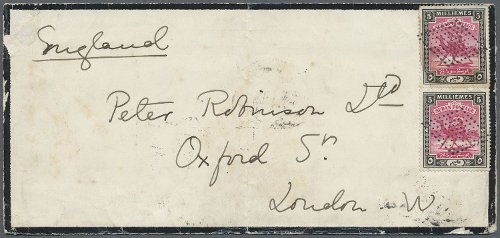 England
5 MILLIEMES 5
Peter Robinson Ltd
Oxford St
London W.
5 MILLIEMES 5